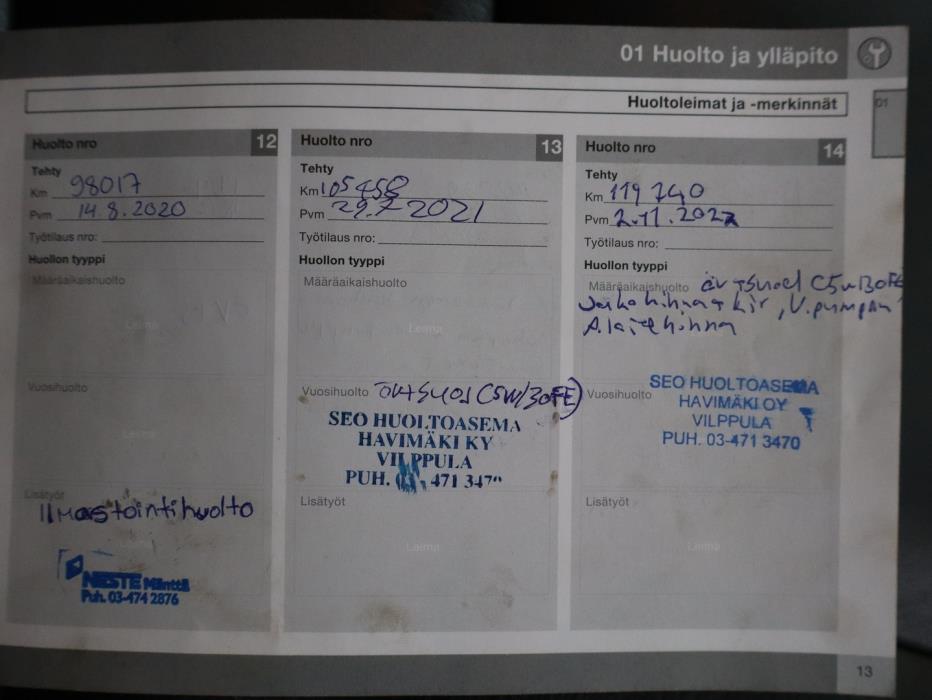 01 Huolto ja ylläpito
Huoltoleimat ja -merkinnät
01
Huolto nro 12
Tehty
Km 98017
Pvm 14.8.2020
Työtilaus nro:
Huollon tyyppi
Määräaikaishuolto
Leima
Vuosihuolto
Leima
Lisätyöt
Ilmastointihuolto
Leima
NESTE Mänttä
Puh. 03-474 2876
Huolto nro 13
Tehty
Km 105458
Pvm 29.7 2021
Työtilaus nro:
Huollon tyyppi
Määräaikaishuolto
Leima
Vuosihuolto (5W/30FE)
SEO HUOLTOASEMA
HAVIMÄKI KY
VILPPULA
PUH. 471 347
Lisätyöt
Leima
Huolto nro 14
Tehty
Km 119740
Pvm 2.11.2022
Työtilaus nro:
Huollon tyyppi
Määräaikaishuolto C5W30FE
Jakohihna + kir, V.pumppu
A.laitehihna
Vuosihuolto
SEO HUOLTOASEMA
HAVIMÄKI OY
VILPPULA
PUH. 03-471 3470
Lisätyöt
Leima
13